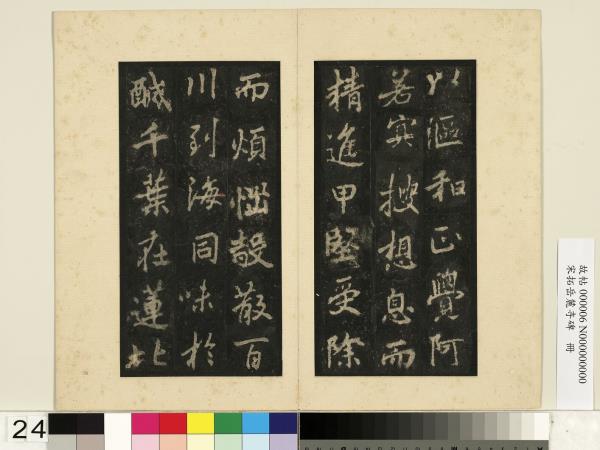 以漚和正覺阿
若冥搜想息而
精進甲堅受除
而煩惱殼散百
川到海同味於
鹹千葉在蓮比
故帖 000006 N000000000
宋拓岳麓寺碑 冊
24